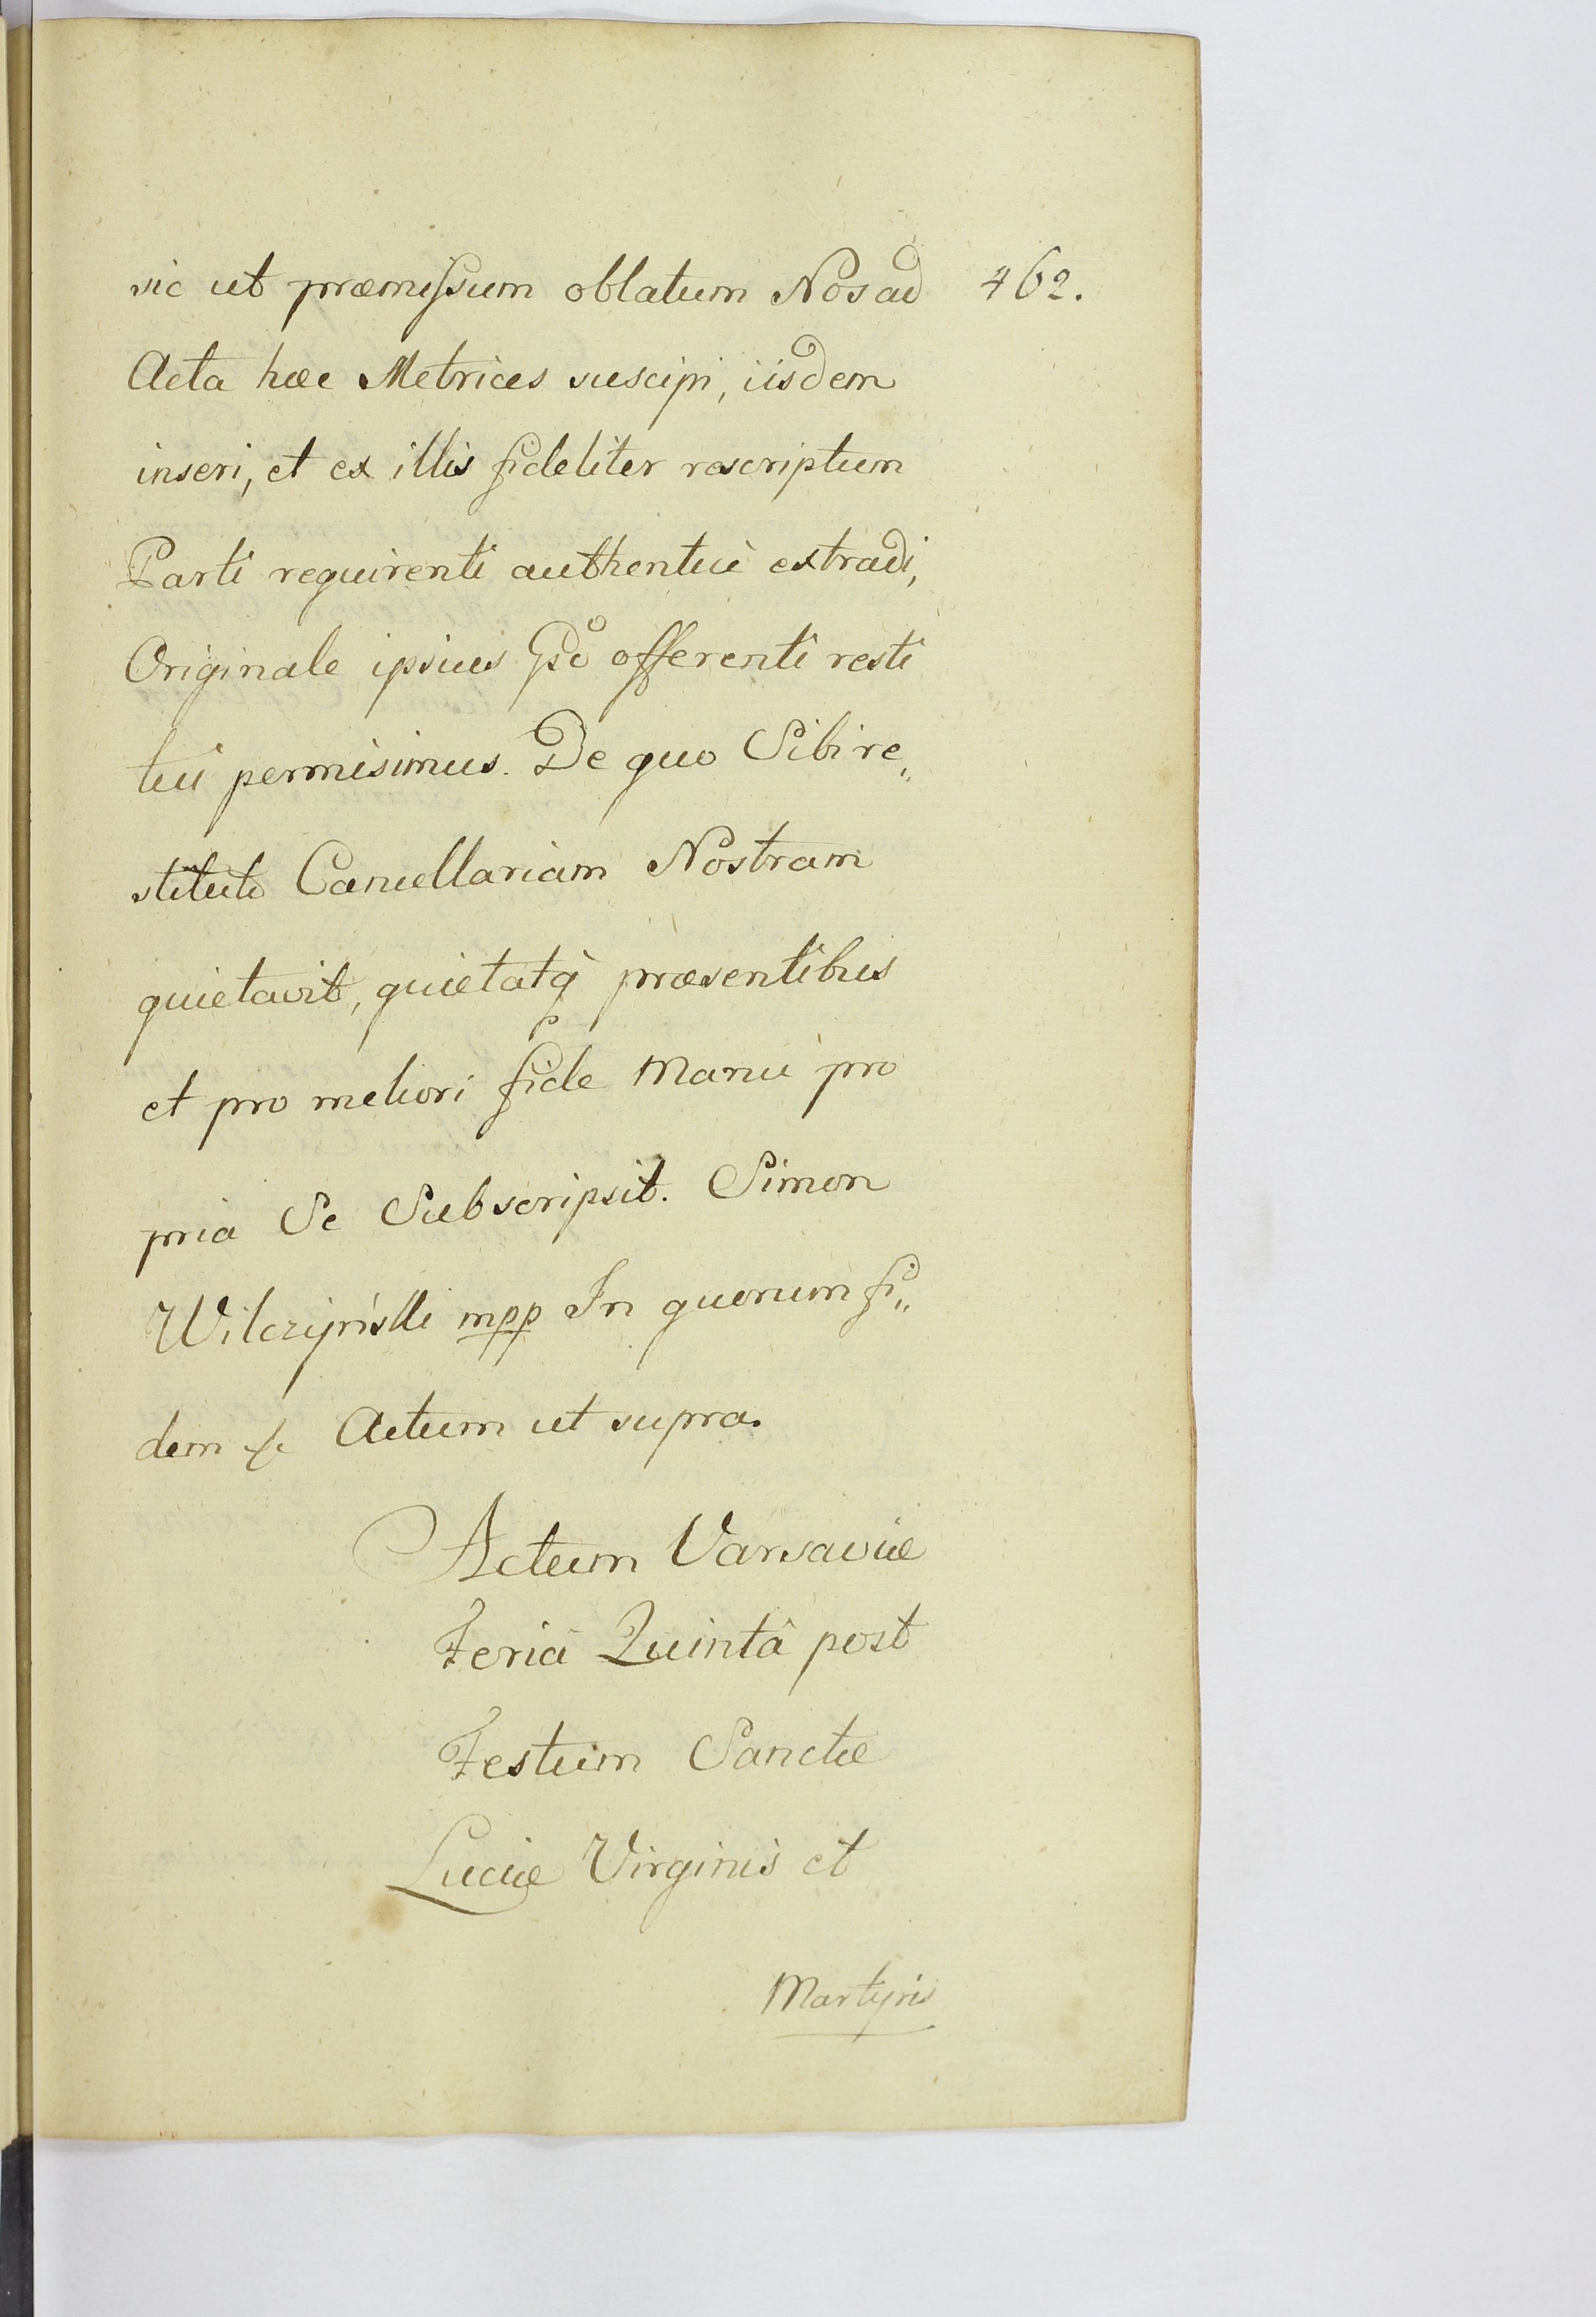 sic ut præmissum oblatum Nos ad 462.
Acta hæc Metrices suscipi, iisdem
inseri, et ex illis fideliter rescriptum
Parti requirenti authenticè extradi,
Originale ipsius Gso offerenti resti
tui permisimus. De quo Sibi re„
stituto Cancellariam Nostram
quietavit, quietatq̀ præsentibus
et pro meliori fide Manu pro
pria Se Subscripsit. Simon
Wilczyński mpp In quorum fi„
dem &c Actum ut supra.
Actum Varsaviæ
Feriâ Quintâ post
Festum Sanctæ
Luciæ Virginis et
Martyris